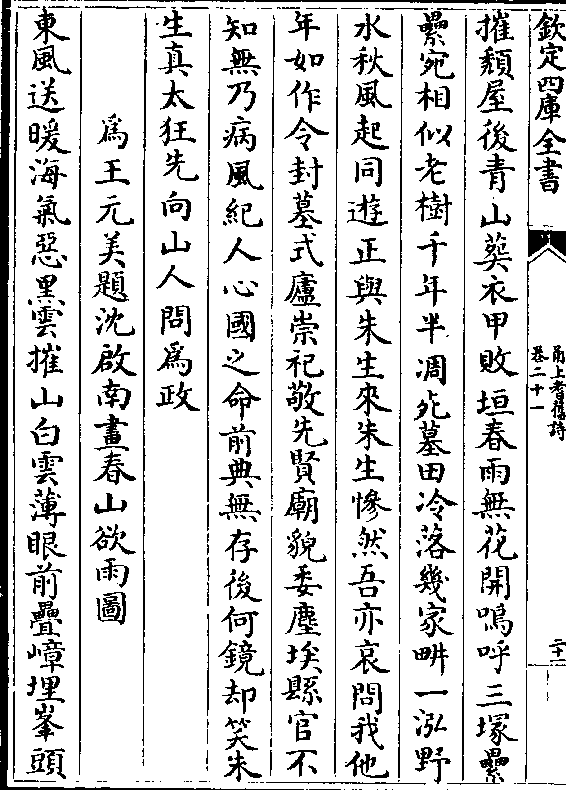 欽定四庫全書
甬上耆舊詩
卷二十一
二十一
摧頽屋後青山葬衣甲敗垣春雨無花開嗚呼三塚纍
纍宛相似老樹千年半凋死墓田冷落幾家畊一泓野
水秋風起同遊正與朱生來朱生慘然吾亦哀問我他
年如作令封墓式廬崇祀敬先賢廟貌委塵埃縣官不
知無乃病風紀人心國之命前典無存後何鏡却笑朱
生真太狂先向山人問為政
為王元美題沈啟南畫春山欲雨圖
東風送暖海氣惡黑雲摧山白雲薄眼前疊嶂埋峯頭